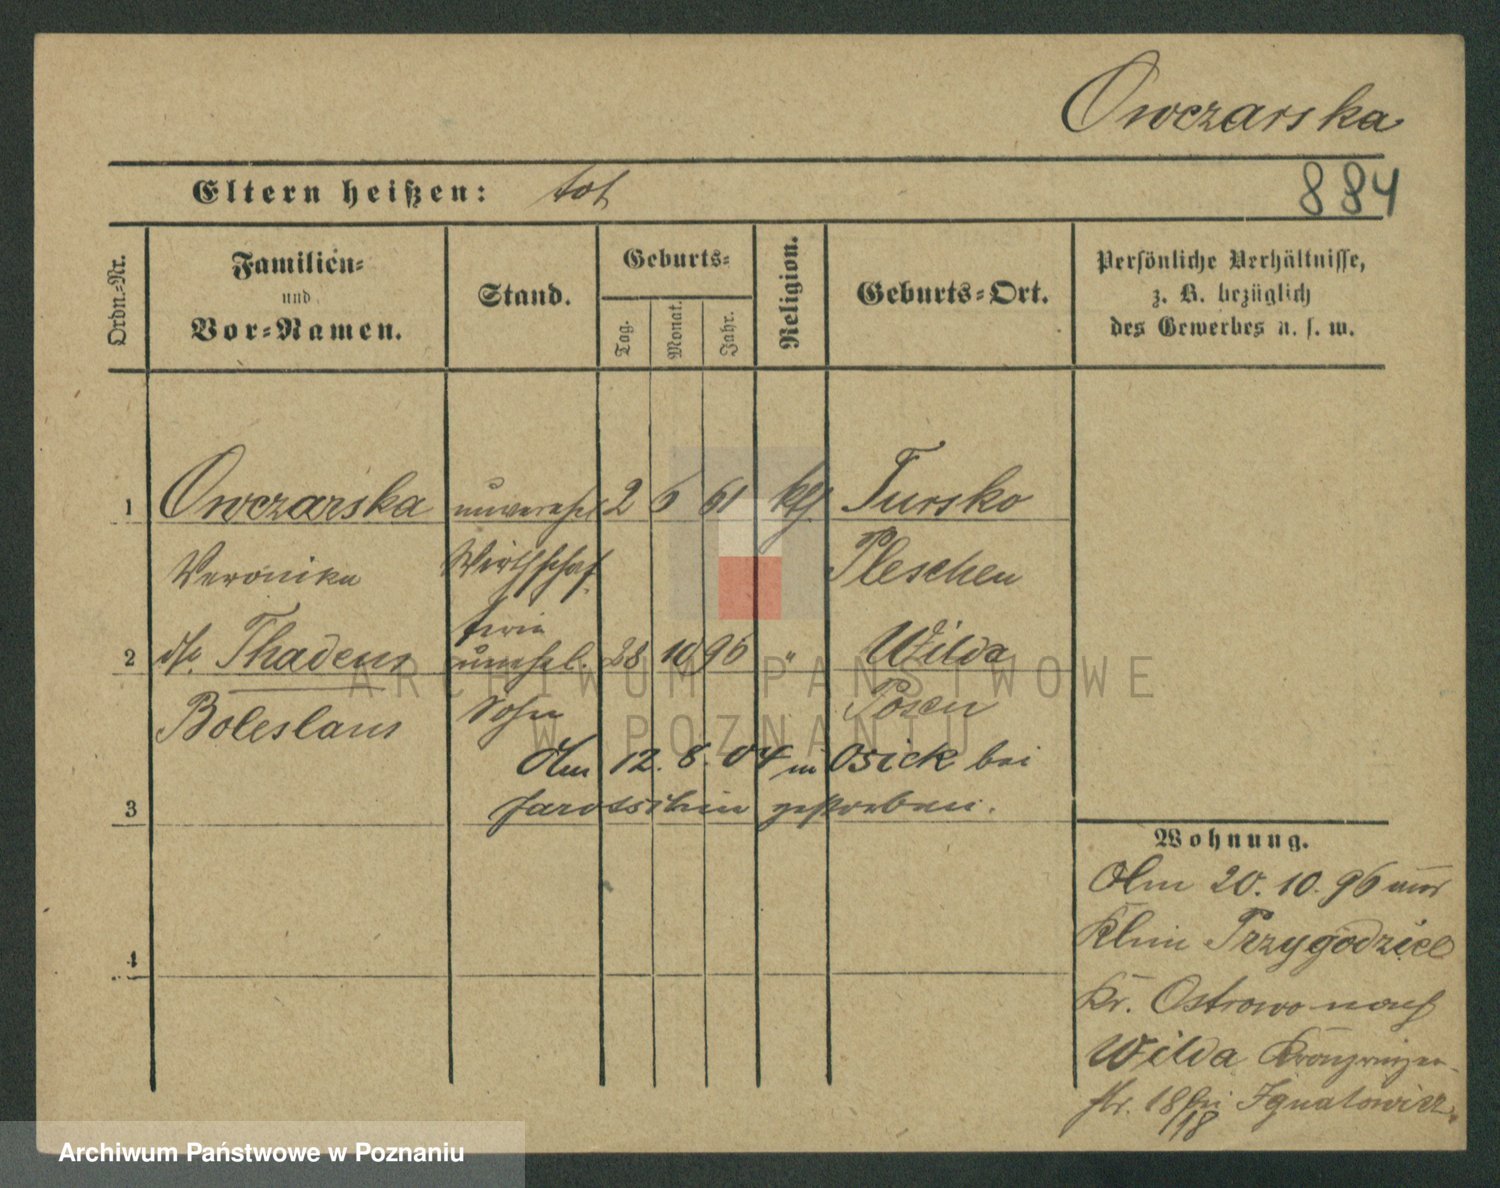 Owczarska
Eltern heißen: tot
884
Ordn.-Nr.
Familien-
und
Vor-Namen.
Stand.
Geburts-
Tag.
Monat.
Jahr.
Religion.
Geburts-Ort.
Persönliche Verhältnisse,
z. B. bezüglich
des Gewerbes u. s. w.
1 Owczarska unverehel 2 6 61 kth. Tursko
Veronika Wirthschaf Pleschen
terin
2 Thadeus unehel. 28 10 96 " Wilda
Boleslaus Sohn Posen
Am 12. 8. 04 in Osiek bei
3 Jarotschin gestorben.
4
Wohnung.
Am 20. 10. 96 aus
Klein Przygodzice
Kr. Ostrowo nach
Wilda Kronprinzen-
str. 18 bei Ignatowicz.
18
ARCHIWUM PAŃSTWOWE
W POZNANIU
Archiwum Państwowe w Poznaniu